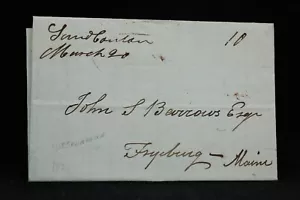 Sand Bouton 10
March 20
John S Barrows Esqr
Fryeburg - Maine